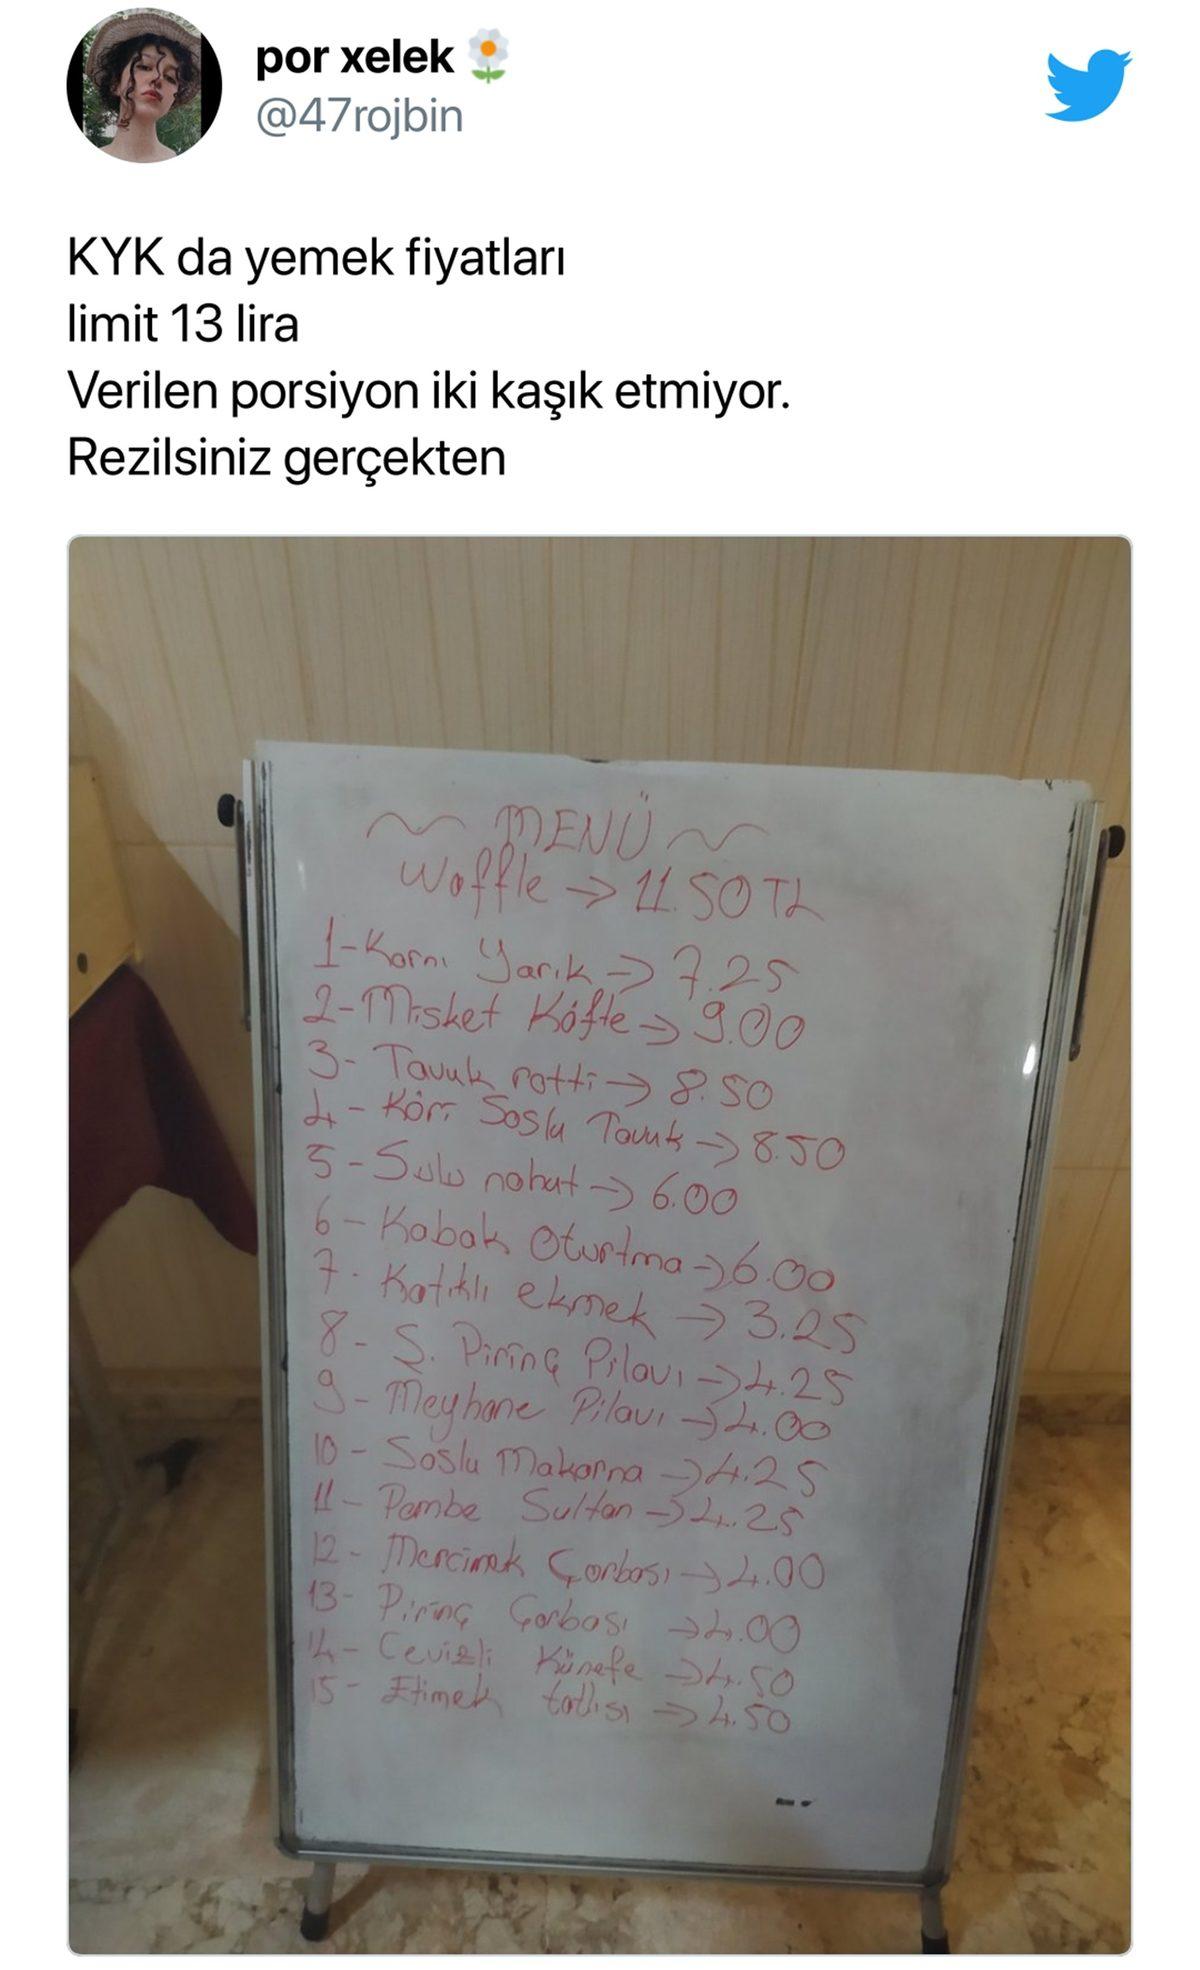 por xelek
@47rojbin
KYK da yemek fiyatları
limit 13 lira
Verilen porsiyon iki kaşık etmiyor.
Rezilsiniz gerçekten
~ MENÜ ~
Waffle → 11.50 TL
1-Karnı Yarık → 7.25
2-Misket Köfte → 9.00
3- Tavuk rotti → 8.50
4- Köri Soslu Tavuk → 8.50
5-Sulu nohut → 6.00
6- Kabak Oturtma → 6.00
7- Katıklı ekmek → 3.25
8- Ş. Pirinç Pilavı → 4.25
9- Meyhane Pilavı → 4.00
10- Soslu Makarna → 4.25
11- Pembe Sultan → 4.25
12- Mercimek Çorbası → 4.00
13- Pirinç Çorbası → 4.00
14- Cevizli Künefe → 4.50
15- Etimek tatlısı → 4.50